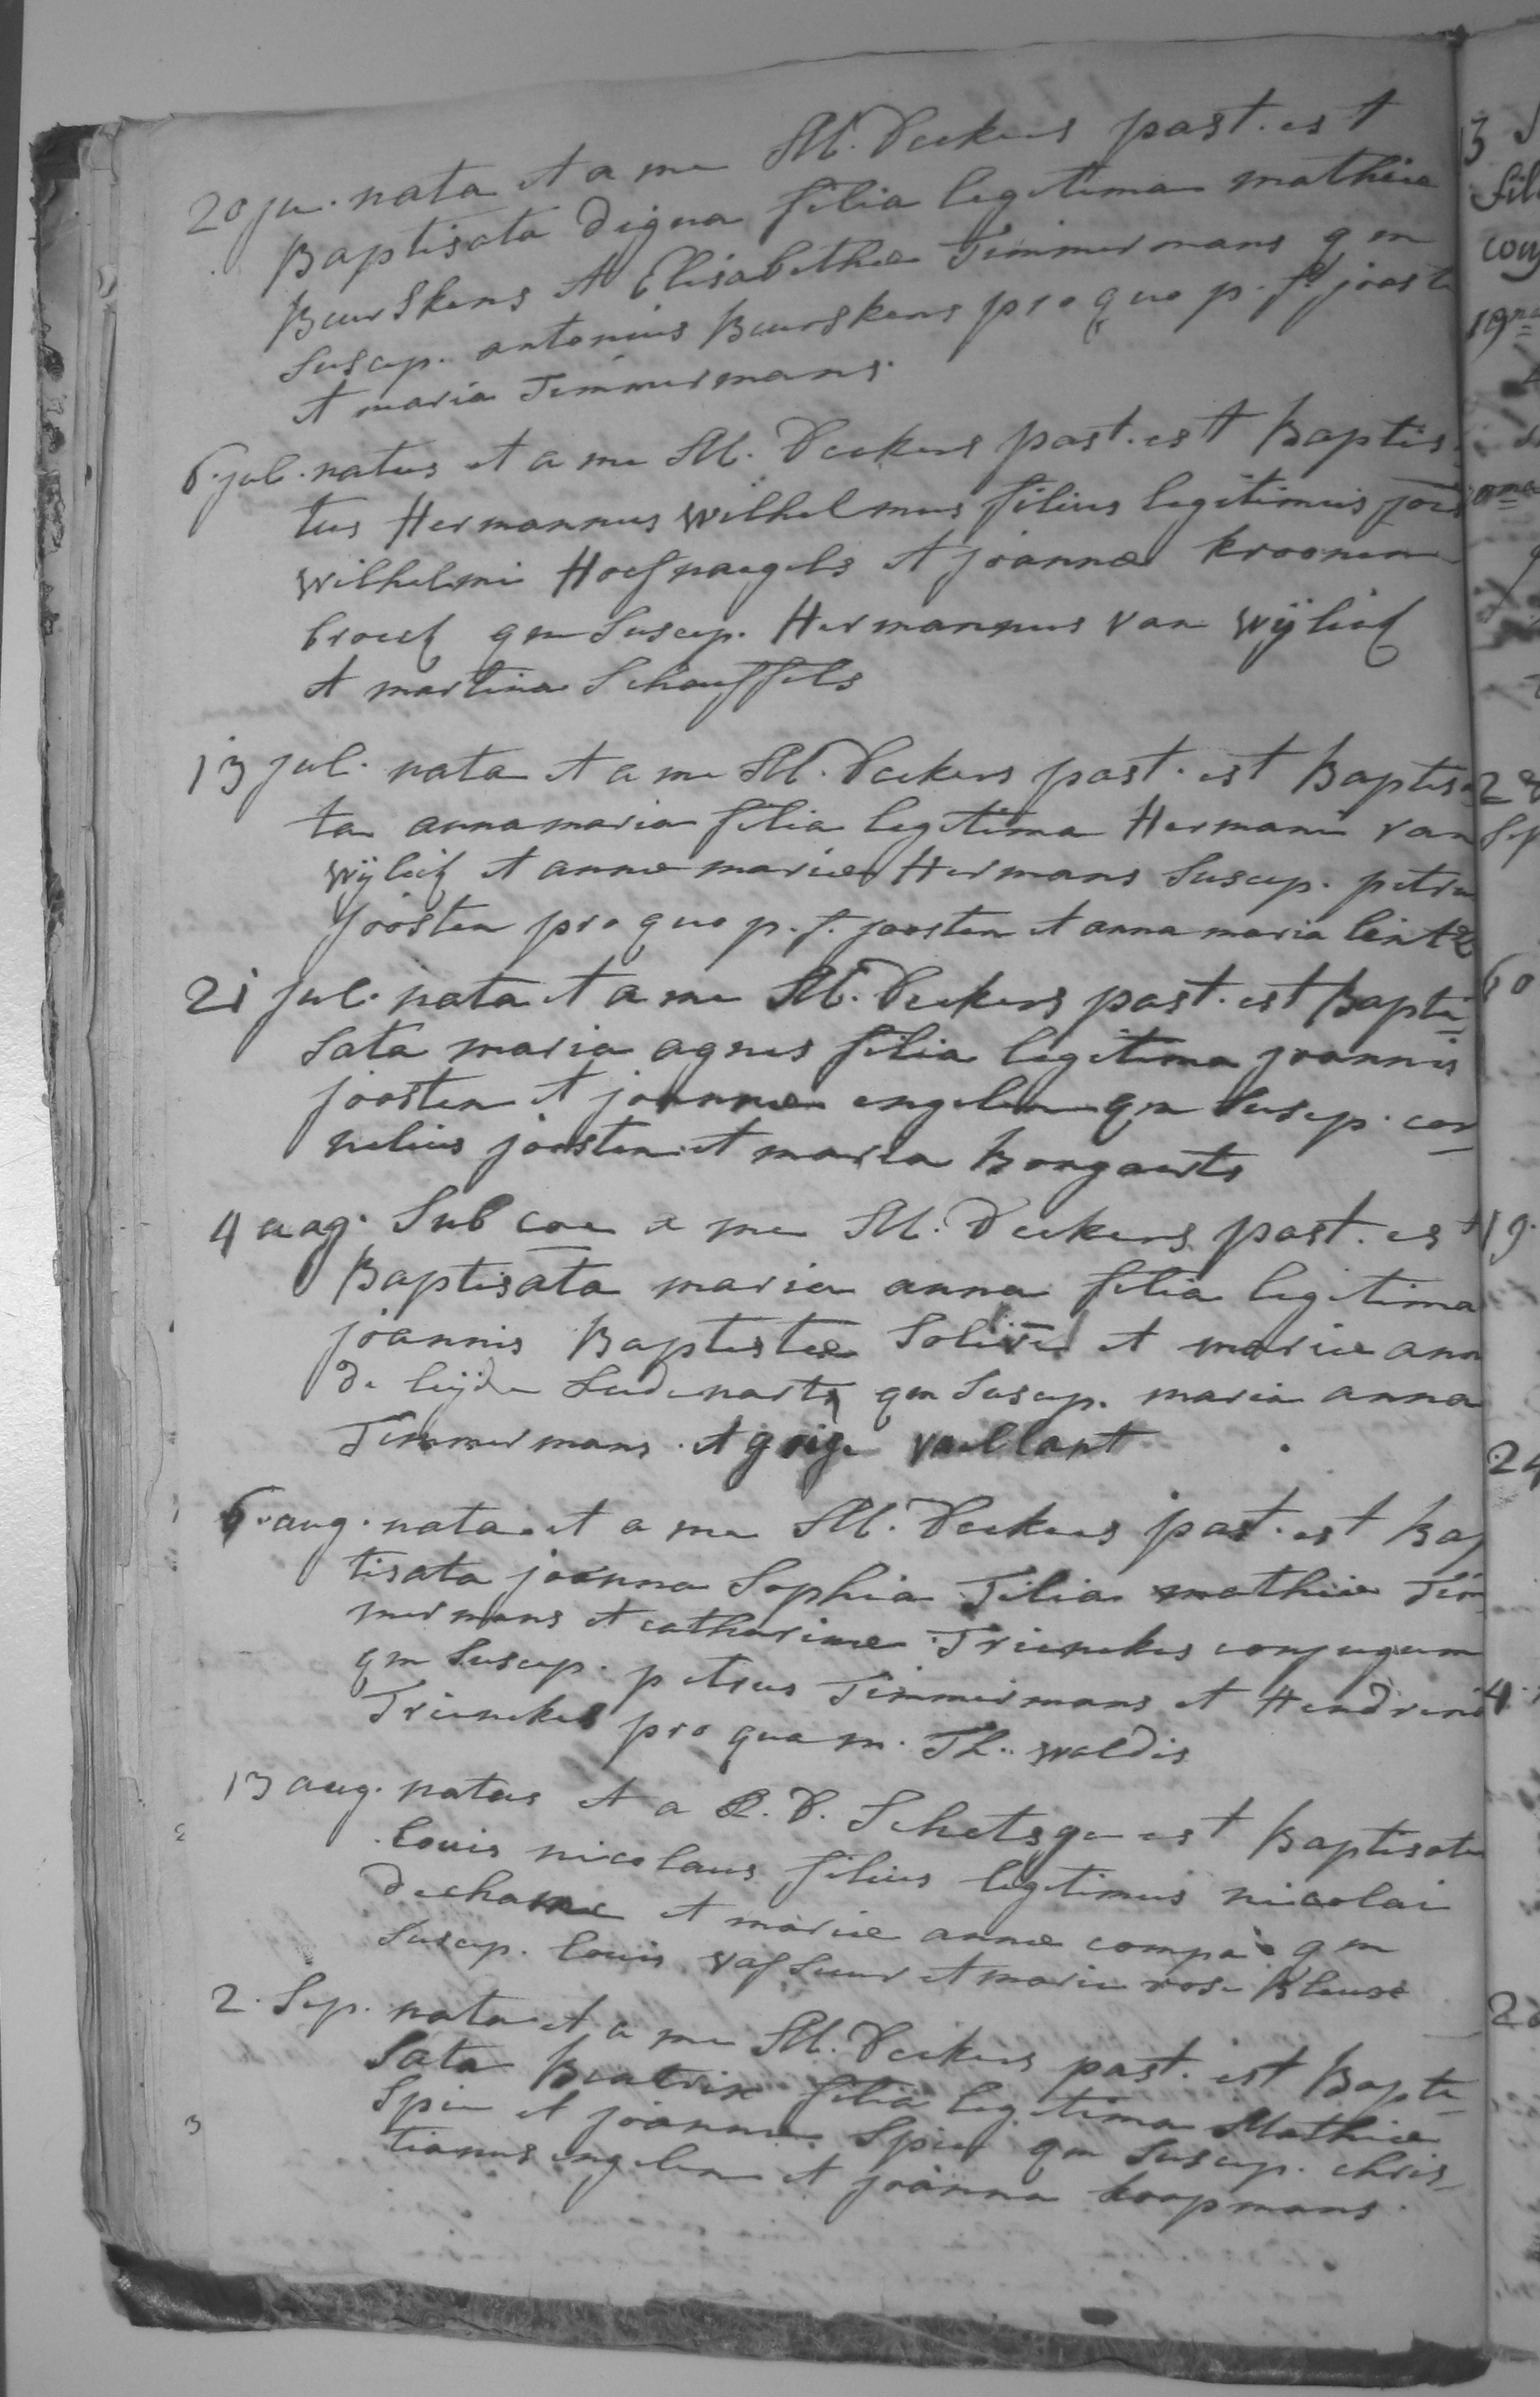 20 ju. nata et a me M. Deckers past. est
Baptisata Digna filia legitima mathiæ
Beurskens et Elisabethæ Timmermans qm
Suscep. antonius Beurskens pro quo p. f. joosten
et maria Timmermans.
6. jul. natus et a me M. Deckers past. est Baptis-
tus Hermannus Wilhelmus filius legitimus
Wilhelmi Hoefnaegels et joannæ kroonen
broeck qm Suscep. Hermannus van Wÿlick
et martina Schouffels
13 jul. nata et a me M. Deckers past. est Baptisa
ta annamaria filia legitima Hermani van
Wÿlick et annæ mariæ Hermans Suscep. petrus
joosten pro quo p. f. joosten et anna maria
21 jul. nata et a me M. Deckers past. est Bapti-
sata maria agnes filia legitima joannis
joosten et joannæ engelen qm Suscep. cor-
nelius joosten et maria Bongaerts
4 aug. Sub con a me M. Deckers past. est
Baptisata maria anna filia legitima
joannis Baptistæ et mariæ ann
de qm Suscep. maria anna
Timmermans et vaillant
6. aug. nata et a me M. Deckers past. est Bap
tisata joanna Sophia Filia mathiæ Tim
mermans et catharinæ Trienekes conjugum
qm Suscep. petrus Timmermans et Hendrina
Trienekes pro qua m. Th. waldis
13 aug. natus et a R. D. Schetsge est Baptisatus
louis nicolaus filius legitimus nicolai
et mariæ annæ qm
Suscep. louis vasseur et marie rose
2. Sep. nata et a me M. Deckers past. est Bapti-
sata Beatrix filia legitima Mathiæ
Spee et joannæ qm Suscep. chris-
tianus engelen et joanna koopmans.